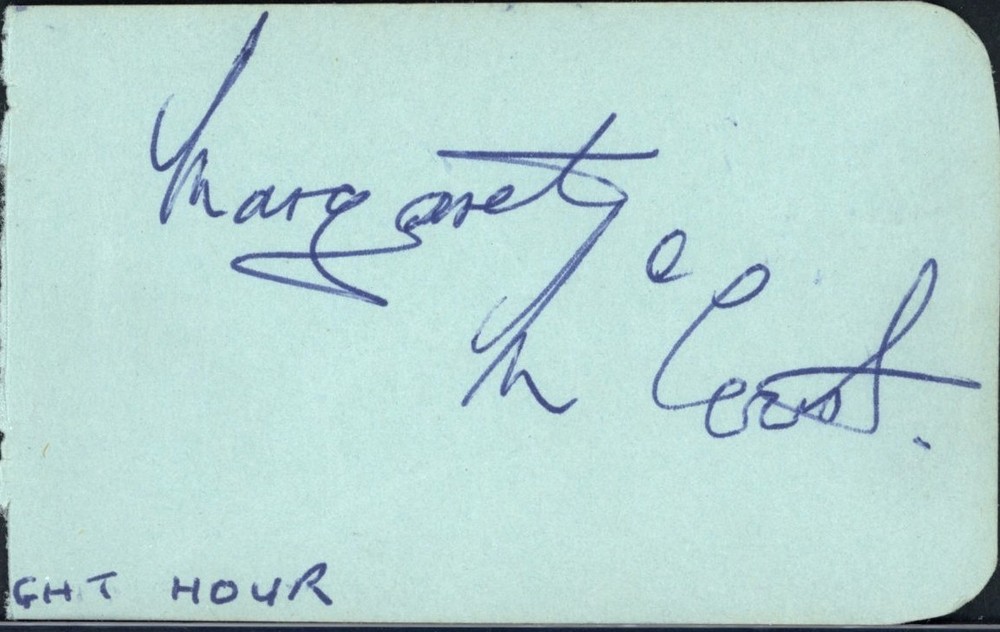 Margaret
McCourt.
GHT HOUR